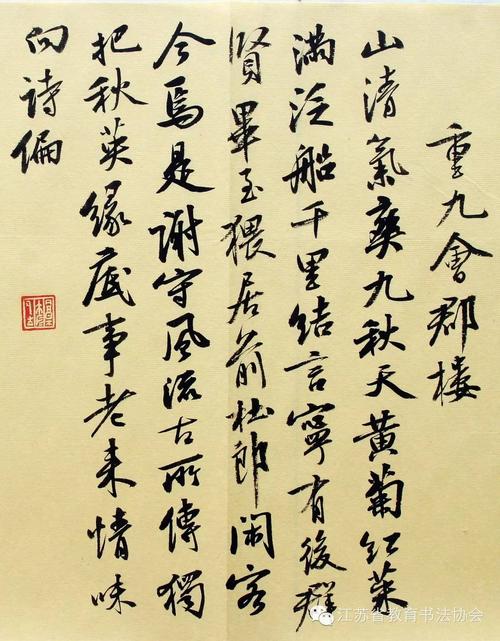 重九會郡樓
山清氣爽九秋天黃菊紅茱
滿泛船千里結言寧有後群
賢畢至猥居前杜郎閑客
今焉是謝守風流古所傳獨
把秋英緣底事老來情味
向詩偏
江苏省教育书法协会